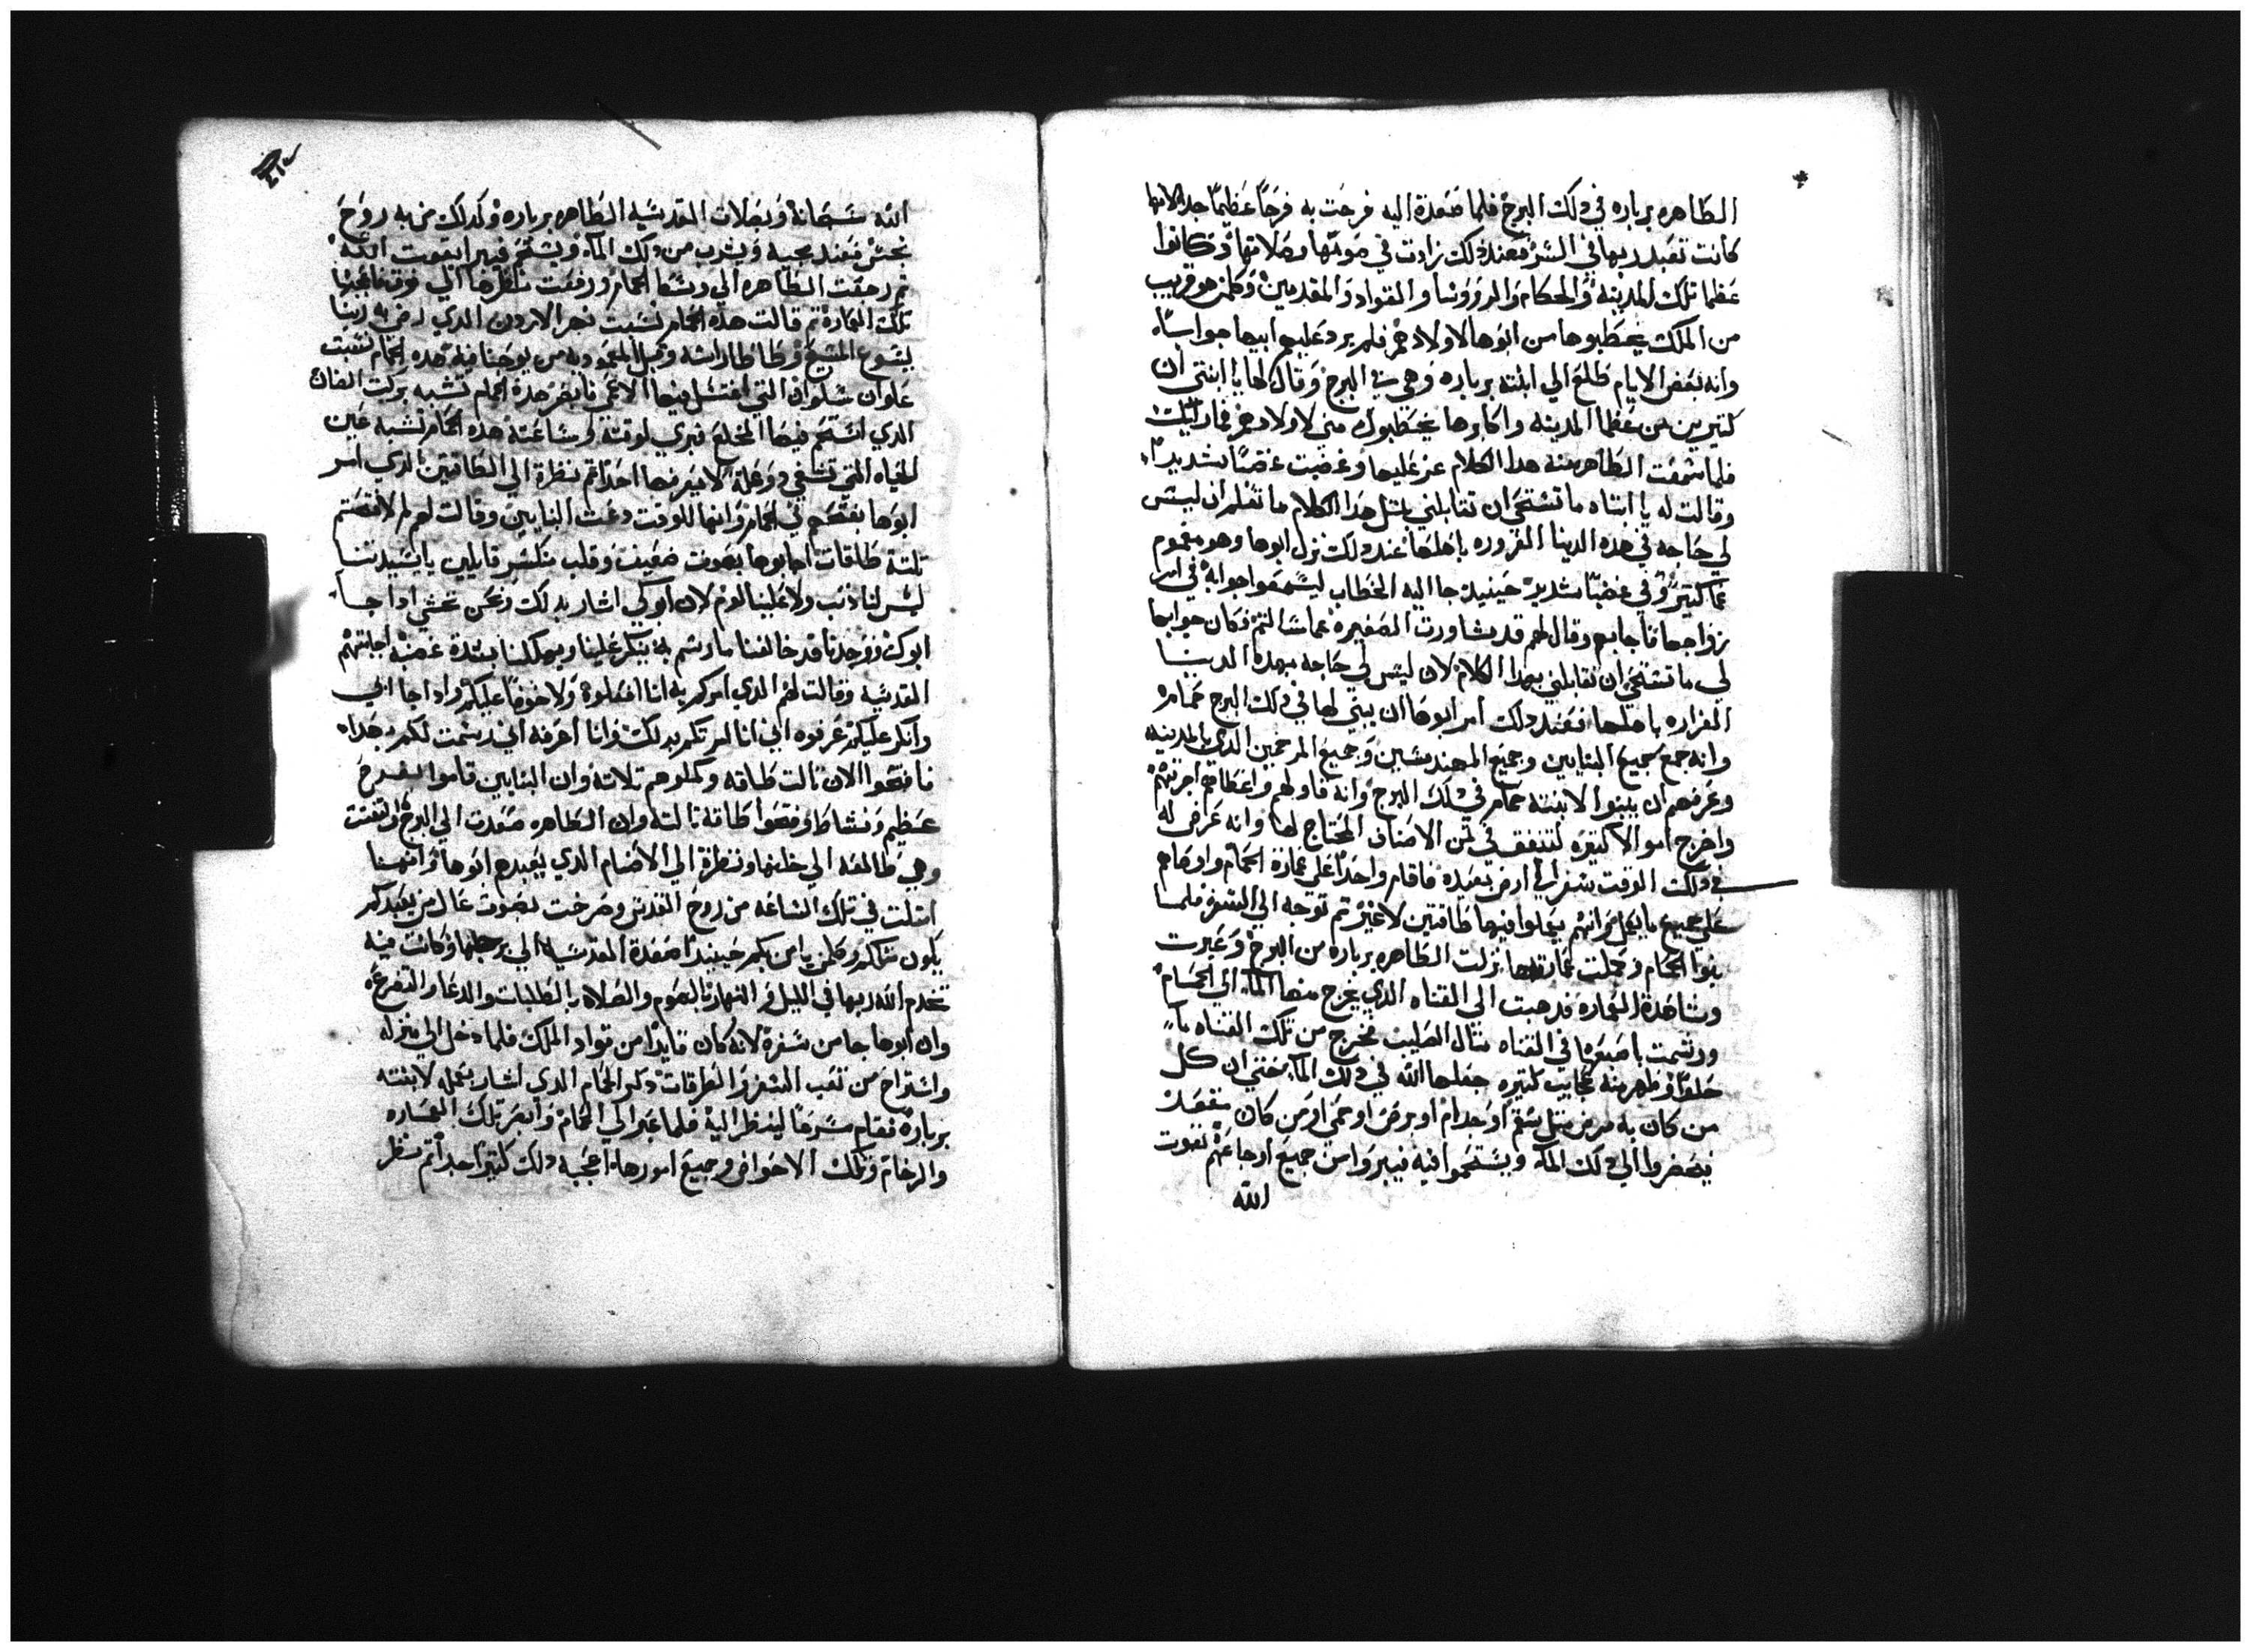 الطاهره برباره في دلك البرج فلما صعدة اليه فرحت به فرحاً عظيماً جدا لانها
كانت تعبد ربها في السر فعند دلك زادت في صومها وصلاتها وكانوا
عظما تلك المدينه والحكام والروونسا والقواد والمقدمين وكلمن هو قريب
من الملك يخطبوها من ابوها لاولادهم فلم يرد عليهم ابيها جواباً
وانه بعض الايام طلع الي ابنته برباره وهي في البرج وقال لها يا ابنتي ان
كتيرين من عظما المدينه واكابرها يخطبوك مني لاولادهم فما رايك
فلما سمعت الطاهره منه هدا الكلام عز عليها وغضبت غضباً شديداً
وقالت له يا ابتاه ما تستحي ان تقابلني بمتل هدا الكلام ما تعلم ان ليس
لي حاجه في هده الدينا الغروره باهلها عند دلك نزل ابوها وهو مغموم
غما كتير وفي غضباً شديد حينيد جا اليه الخطاب ليسمعوا جوابه في امر
زواجها فاجابهم وقال لهم قد شاورت الصغيره عما سالتم فكان جوابها
لي ما تستحي ان تقابلني بهدا الكلام لان ليس لي حاجه بهده الدينا
الغراره باهلها فعند دلك امر ابوها ان يبني لها في دلك البرج حمام
وانه جمع جميع البنايين وجميع المهندسين وجميع المرخمين الدي بالمدينه
وعرفهم ان يبنوا لابنته حمام في دلك البرج وانه قاولهم واعطاهم اجرتهم
واخرج اموالا كتيره لتنفق في تمن الاصناف المحتاج لها وانه عرض له
في دلك الوقت سفر الي ارض بعيده فاقام واحداً علي عمارة الحمام واوصاهم
علي جميع ما يعمل وانهم يعملوا فيها طاقتين لاغير تم توجه الي السفر فلما
بنوا الحمام وكملت عمارتها نزلت الطاهره برباره من البرج وعبرت
وشاهدة العماره فدهبت الي القناه الدي يخرج منها الماء الي الحمام
ورشمت باصبعها في القناه متال الصليب فخرج من تلك القناه ماً
حلواً وظهر منه عجايب كتيره جعلها الله في دلك الما حتي ان كل
من كان به مرض متل سقم او جدام او برص او حمي او من كان مقعد
يحضروا الي دلك الما ويستحموا فيه فيبروا من جميع اوجاعهم بقوت
الله
الله سبحانه وبصلات القديسه الطاهره برباره وكدلك من به روح
نجس فعند مجيه ويشرب من دلك الماء ويستحم فيبرا بقوت الله
تم رجعت الطاهره الي وسط الحمام ورفعت ناظرها الي فوق فاعجبها
تلك العماره تم قالت هده الحمام تشبه نهر الاردن الدي رضي به ربنا
يسوع المسيح وطاطا راسه وقبل المعموديه من يوحنا فيه هده الحمام تشبه
علوان سلوان التي اغتسل فيها الاعمي فابصر هدة الحمام تشبه بركت الضان
الدي استحم فيها المخلع فبري لوقته وساعته هده الحمام تشبه عين
الحياه التي تشفي وعلة لا يعرفها احد تم نظرة الي الطاقتين الدي امر
ابوها بفتحهم في الحمام وانها للوقت دعت البنايين وقالت لهم لم لا فتحتم
تلتة طاقات اجابوها بصوت ضعيف وقلب منكسر قايلين يا سيدتنا
ليس لنا دنب ولا علينا لوم لان ابوكي اشار بدلك ونحن نخشي ادا جا
ابوك ووجدنا قد خالفنا ما رسم به ينكر علينا ويهلكنا بشدة غضبه اجابتهم
القديسه وقالت لهم الدي امركم به انا افعلوه ولا خوفاً عليكم وادا جا ابي
وانكر عليكم عرفوه اني انا امرتكم بدلك وانا اعرفه اني رسمت لكم بهداه
فافتحوا الان تالت طاقه وكملوهم تلاته وان البنايين قاموا بفرح
عظيم ونشاط وفتحوا طاقة تالته وان الطاهره صعدت الي البرج والتفتت
وهي طالعه الي خلفها ونظرة الي الاصنام الدي يعبدهم ابوها وانهنا
امتلت في تلك الساعه من روح القدس وصرخت بصوت عال من يعبدكم
يكون متلكم وكلمن يامن بكم حينيدا صعدة القديسه الي برجها وكانت فيه
تخدم الله ربها في الليل والنهار بالصوم والصلاه بالطلبات والدعا والتضرع
وان ابوها جا من سفره لانه كان قايداً من قواد الملك فلما دخل الي منزله
واستراح من تعب السفر والطرقات دكر الحمام الدي اشار بعمله لابنته
برباره فقام مسرعاً لينظر اليه فلما عبر الي الحمام وابصر تلك العماره
والرخام وتلك الاحواض وجميع امورها اعجبه دلك كتيراً جداً تم نظر